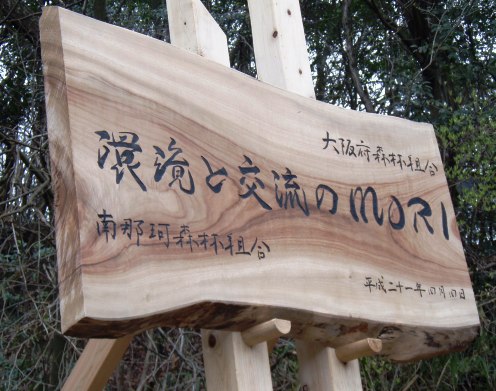 大阪府森林組合
環境と交流のMORI
南那珂森林組合
平成二十一年四月四日